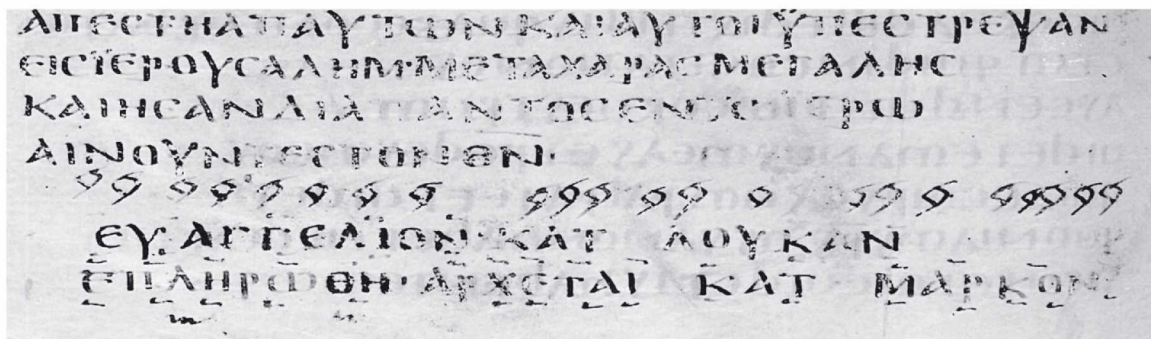 ΑΠΕϹΤΗΑΠΑΥΤΩΝΚΑΙΑΥΤΟΙΫΠΕϹΤΡΕΨΑΝ
ΕΙϹΪΕΡΟΥϹΑΛΗΜ·ΜΕΤΑΧΑΡΑϹΜΕΓΑΛΗϹ
ΚΑΙΗϹΑΝΔΙΑ ΑΝΤΟϹΕΝΤΩΪΕΡΩ
ΑΙΝΟΥΝΤΕϹΤΟΝΘΝ·
ΕΥΑΓΓΕΛΙΟΝ ΚΑΤ ΛΟΥΚΑΝ
ΕΠΛΗΡΩΘΗ·ΑΡΧΕΤΑΙ ΚΑΤ ΜΑΡΚΟΝ